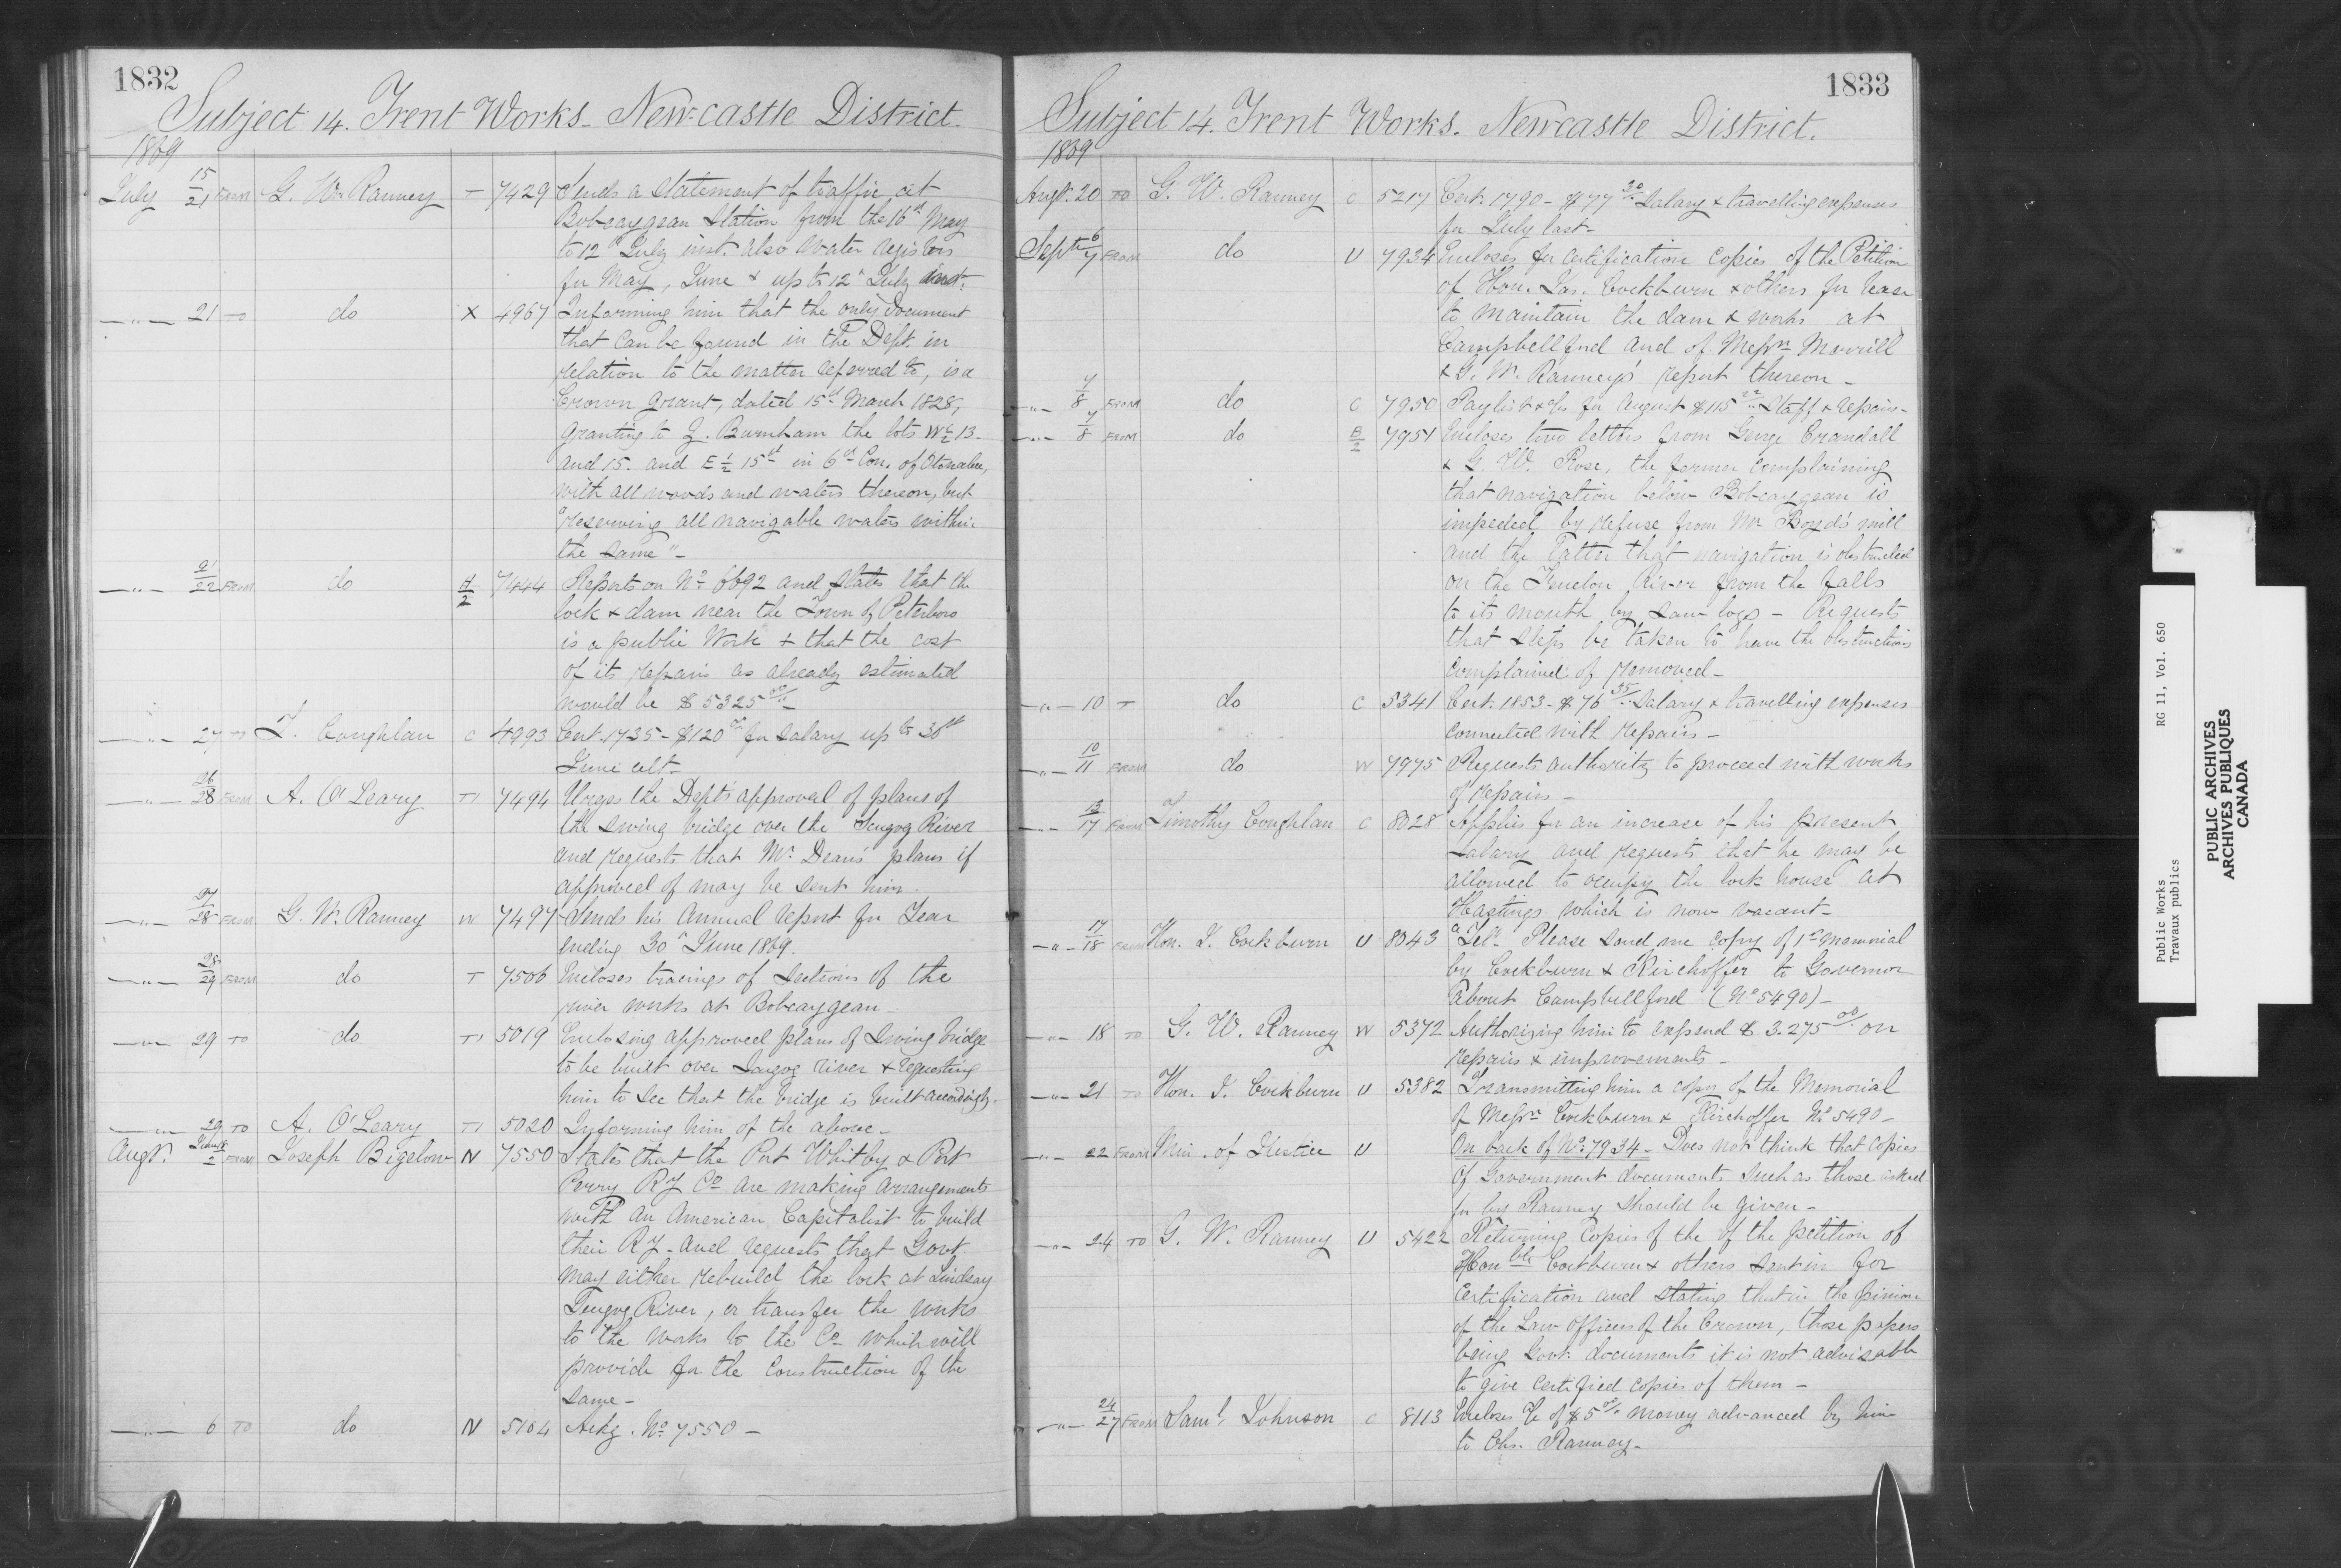 1832
Subject 14. Trent Works. Newcastle District.
1869
July 15/21 FROM G. W. Ranney T 7429 Sends a statement of traffic at
Bobcaygean Station from the 16th May
to 12th July inst. also water registers
for May, June & up to 12th July inst.
—"— 21 TO do X 4967 Informing him that the only document
that can be found in the Dept. in
relation to the matter referred to, is a
Crown Grant, dated 15th March 1828,
granting to Z. Burnham the lots W ½ 13.
and 15. and E ½ 15th in 6th Con. of Otonabee,
with all woods and waters thereon, but
"reserving all navigable waters within
the same"—
—"— 21/22 FROM do H/2 7444 Reports on No 6692 and states that the
lock & dam near the Town of Peterboro
is a public Work & that the cost
of its repairs as already estimated
would be $5325 00/—
—"— 27 TO T. Coughlan C 4993 Cert. 1735 - $120 00/ for salary up to 30th
June ult.
—"— 26/28 FROM A. O'Leary T1 7494 Urges the Dept's approval of plans of
the swing bridge over the Scugog River
and requests that Mr. Dean's plans if
approved of may be sent him.
—"— 27/28 FROM G. W. Ranney W 7497 Sends his Annual report for Year
ending 30th June 1869.
—"— 28/29 FROM do T 7506 Encloses tracings of Sections of the
river works at Bobcaygean
—"— 29 TO do T1 5019 Enclosing approved plans of Swing bridge
to be built over Scugog river & requesting
him to see that the bridge is built accordingly.
—"— 29 TO A. O'Leary T1 5020 Informing him of the above—
Augt. 2 FROM Joseph Bigelow N 7550 States that the Port Whitby & Port
Perry RY Co are making arrangements
with an American Capitalist to build
their RY - and requests that Govt.
may either rebuild the lock at Lindsay
Scugog River, or transfer the works
to the works to the Co which will
provide for the construction of the
same—
—"— 6 TO do N 5164 Ackg. No. 7550—
1833
Subject 14. Trent Works. Newcastle District.
1869
Augt. 20 TO G. W. Ranney C 5217 Cert. 1790 - $77 30/ Salary & travelling expenses
for July last—
Septr 6/7 FROM do U 7934 Encloses for certification copies of the Petition
of Hon. Jas. Cockburn & others for lease
to maintain the dam & works at
Campbellford and of Messrs Merrill
& G. W. Ranney's report thereon—
—"— 7/8 FROM do C 7950 Paylist &c for August $115 22/ Staff & repairs—
—"— 7/8 FROM do B/2 7951 Encloses two letters from George Crandall
& G. W. Rose, the former complaining
that navigation below Bobcaygean is
impeded by refuse from Mr Boyd's mill
and the latter that navigation is obstructed
on the Fenelon River from the falls
to its mouth by saw logs — Requests
that steps be taken to have the obstructions
complained of removed—
—"— 10 T do C 5341 Cert. 1853 - $76 35/ Salary & travelling expenses
connected with repairs—
—"— 10/11 FROM do W 7975 Requests authority to proceed with works
of repairs—
—"— 13/17 FROM Timothy Coughlan C 8028 Applies for an increase of his present
salary and requests that he may be
allowed to occupy the lock house at
Hastings which is now vacant—
—"— 17/18 FROM Hon. J. Cockburn U 8043 "Tel" Please send me copy of 1st memorial
by Cockburn & Kirchoffer to Governor
about Campbellford (No 5490)—
—"— 18 TO G. W. Ranney W 5372 Authorizing him to expend $3.275 00/ on
repairs & improvements—
—"— 21 TO Hon. J. Cockburn U 5382 Transmitting him a copy of the Memorial
of Messrs Cockburn & Kirchoffer No 5490—
—"— 22 FROM Min. of Justice U On back of No: 7934 — Does not think that copies
of Government documents such as those asked
for by Ranney should be given—
—"— 24 TO G. W. Ranney U 5422 Returning copies of the of the petition of
Honble Cockburn & others sent in for
certification and stating that in the opinion
of the Law Officers of the Crown, those papers
being Govt. documents it is not advisable
to give certified copies of them—
—"— 24/27 FROM Saml. Johnson C 8113 Encloses a/c of $5 00/ money advanced by him
to Chs. Ranney—
Public Works RG 11, Vol. 650
Travaux publics
PUBLIC ARCHIVES
ARCHIVES PUBLIQUES
CANADA